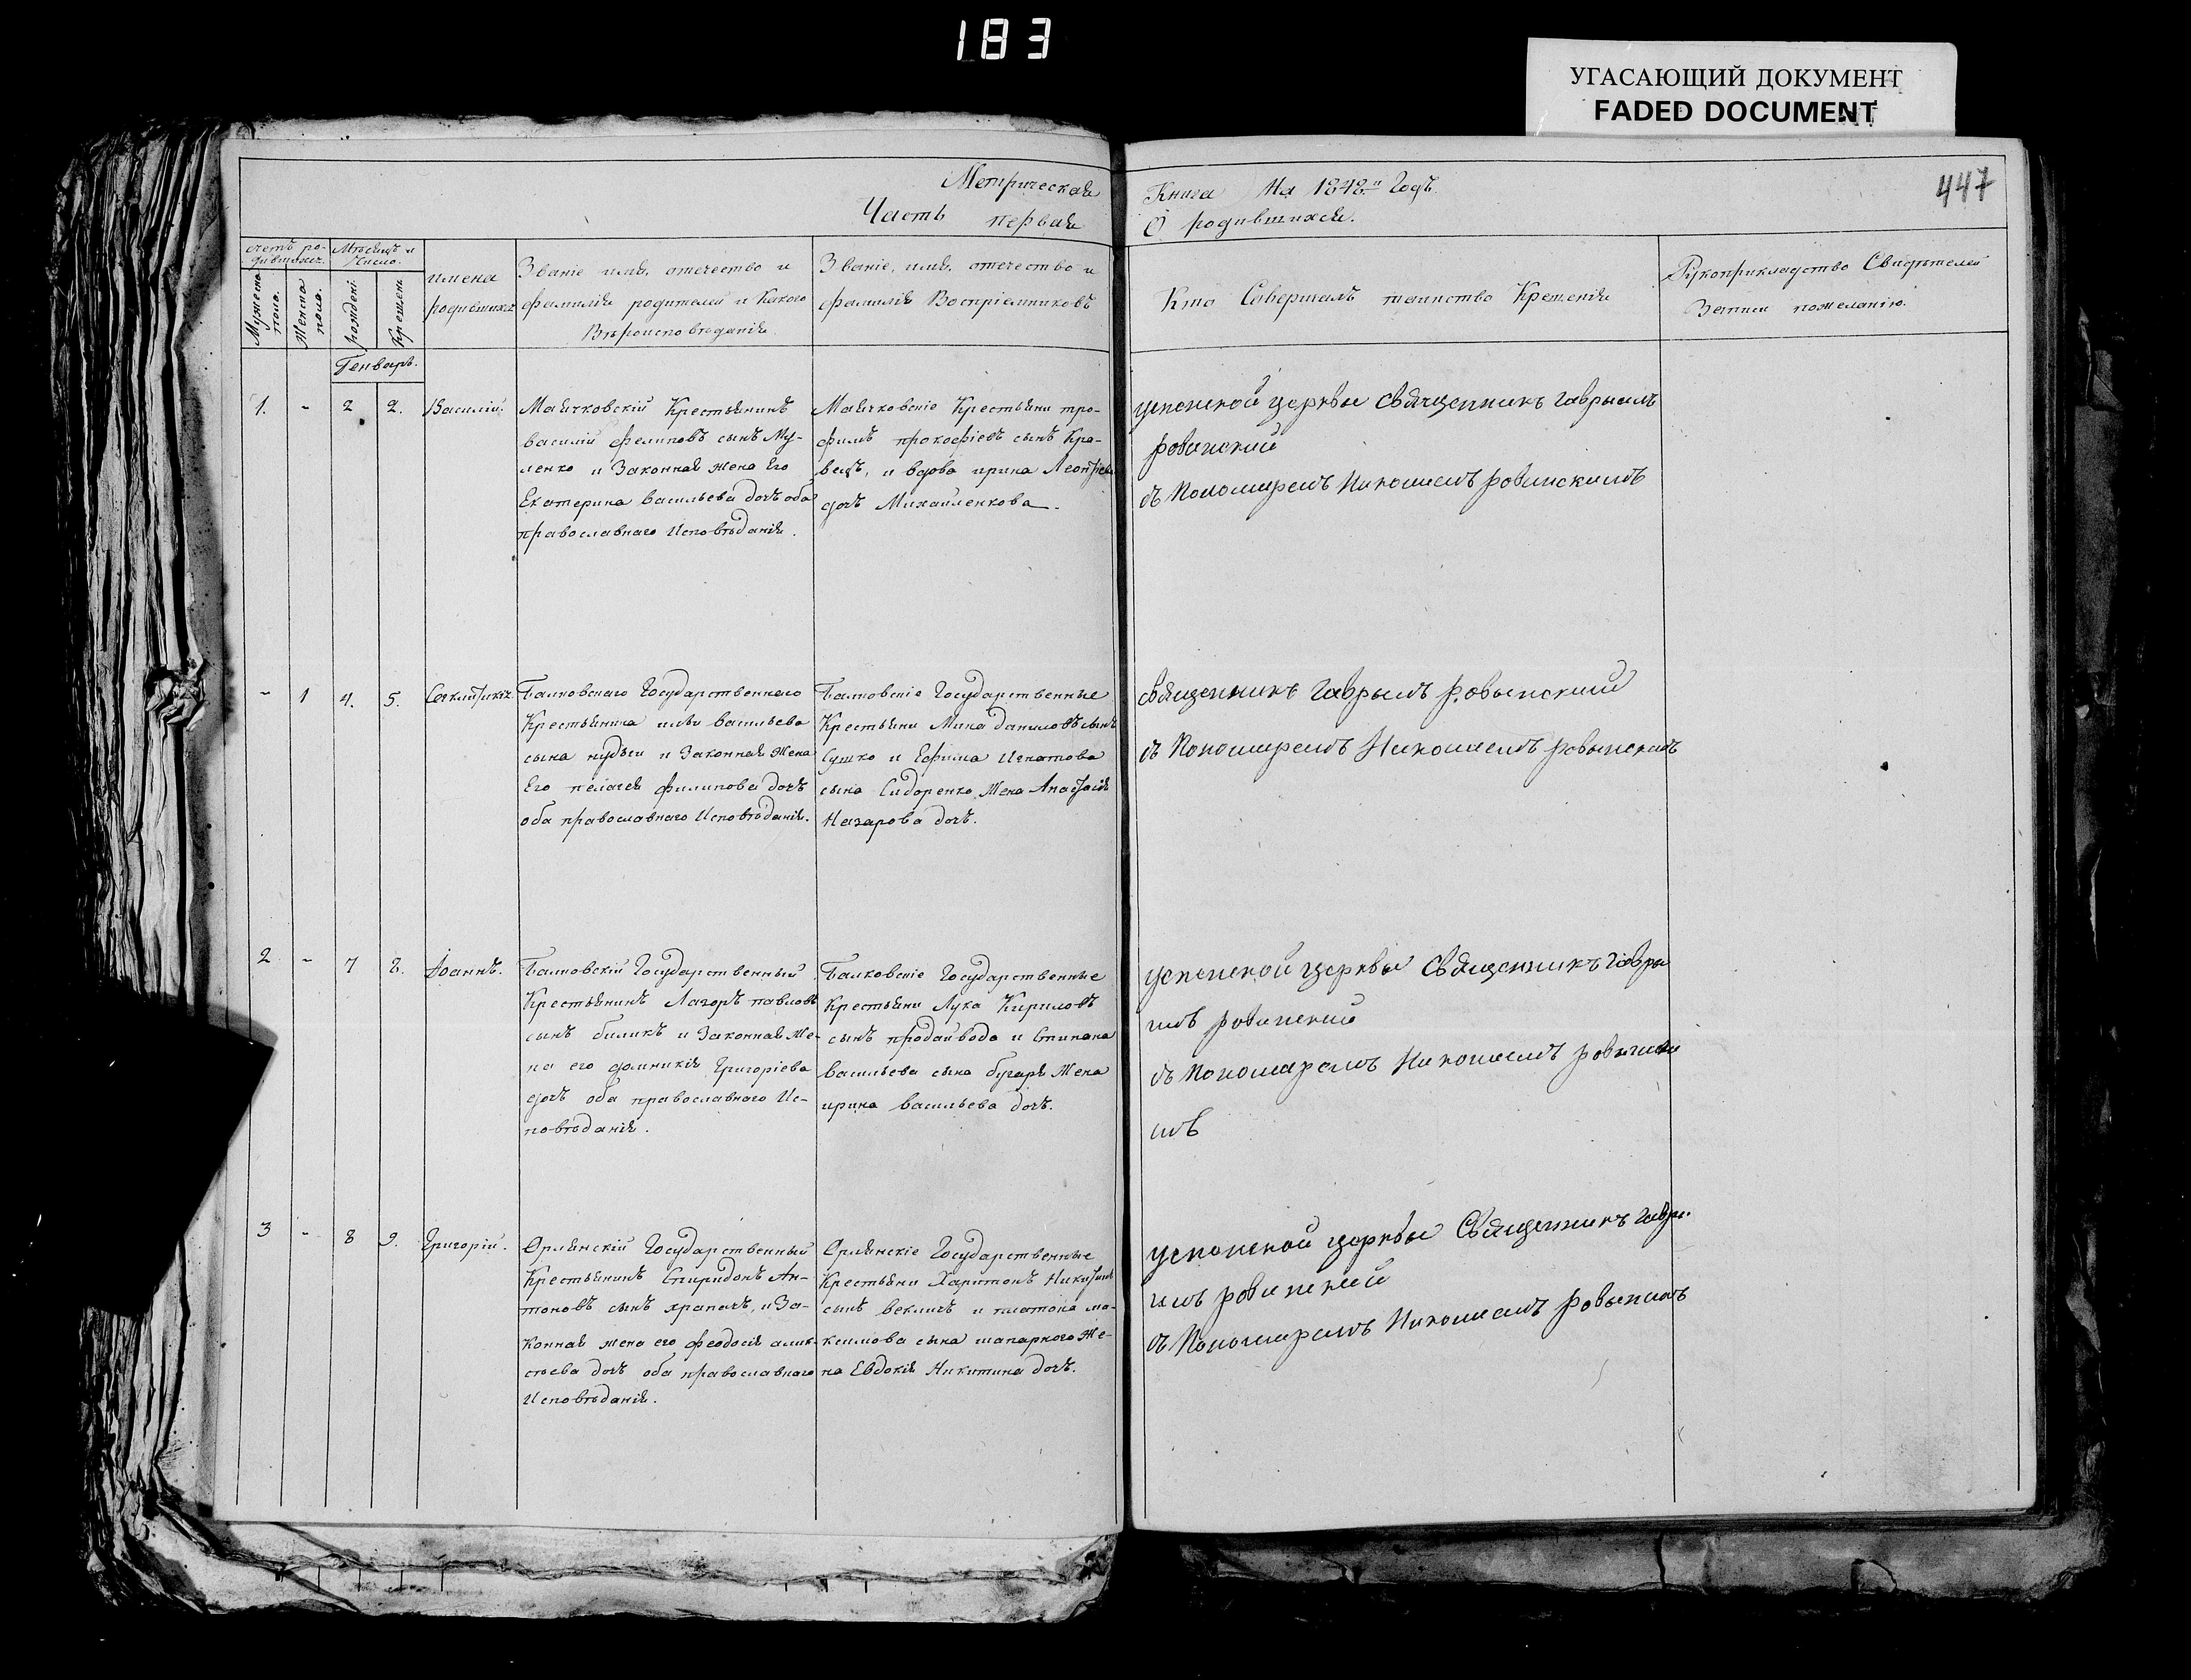 183
УГАСАЮЩИЙ ДОКУМЕНТ
FADED DOCUMENT
447
Метрическая Книга На 1848й Годъ.
Часть первая О родившихся.
счетъ ро-
дившихс.
Мѣсяцъ и
Число.
Мужеска
пола.
Женска
пола.
рожденi.
Крещен.
имена
родившихс.
Званіе имя, отечество и
фамилія родителей и Какого
Вѣроисповѣданія.
Званіе, имя, отечество и
фамилія Воспріемниковъ
Кто Совершалъ таинство Крещенія
Рукоприкладство Свидѣтелей
Записи пожеланію.
Генварь.
1. - 2 2. Василій.
Маячковскій Крестьянинъ
василій фелиповъ сынъ Му-
ленко и Законная жена Его
Екатерина васильева дочъ оба
православнаго Исповѣданія.
Маячковскіе Крестьяни тро-
фимъ прокофіевъ сынъ Кра-
вецъ, и вдова ирина Леонтіева
дочъ Михайленкова.
успенской церквы священникъ гаврыилъ
ровинский
съ Пономаремъ Николаемъ ровинскимъ
- 1 4. 5.
Балковскаго Государственнаго
Крестьянина ильи васильева
сына кудыи и Законная Жена
Его пелагея филипова дочъ
оба православнаго Исповѣданія.
Балковскіе Государственные
Крестьяни Мина даниловъ сынъ
Сушко и Ефима Игнатова
сына Сидоренко Жена Анастасія
Назарова дочъ.
священникъ гаврыилъ ровынский
съ Пономаремъ Николаемъ ровынскимъ
2 - 7 8. Іоаннъ.
Балковскій Государственный
Крестьянинъ Лагоръ павловъ
сынъ биликъ и Законная Же-
на его домникія Григоріева
дочъ оба православнаго Ис-
повѣданія.
Балковскіе Государственные
Крестьяни Лука Кириловъ
сынъ продайвода и Стипана
васильева сына бугаря Жена
ирина васильева дочъ.
успенской церквы Священникъ гавры
илъ ровинский
съ Пономаремъ Николаемъ ровински
мъ
3 - 8 9. Григорій.
Орлянскій Государственный
Крестьянинъ Спиридонъ Ан-
тоновъ сынъ храпачъ, и За-
конная жена его феодосія алик-
сѣева дочъ оба православнаго
Исповѣданія.
Орлянскіе Государственные
Крестьяни Харитонъ Никитинъ
сынъ векличъ и платона ма-
ксимова сына шапарного Же-
на Евдокія Никитина дочъ.
успенской церквы Священникъ гавры
илъ ровинский
съ Пономаремъ Николаемъ ровынскимъ